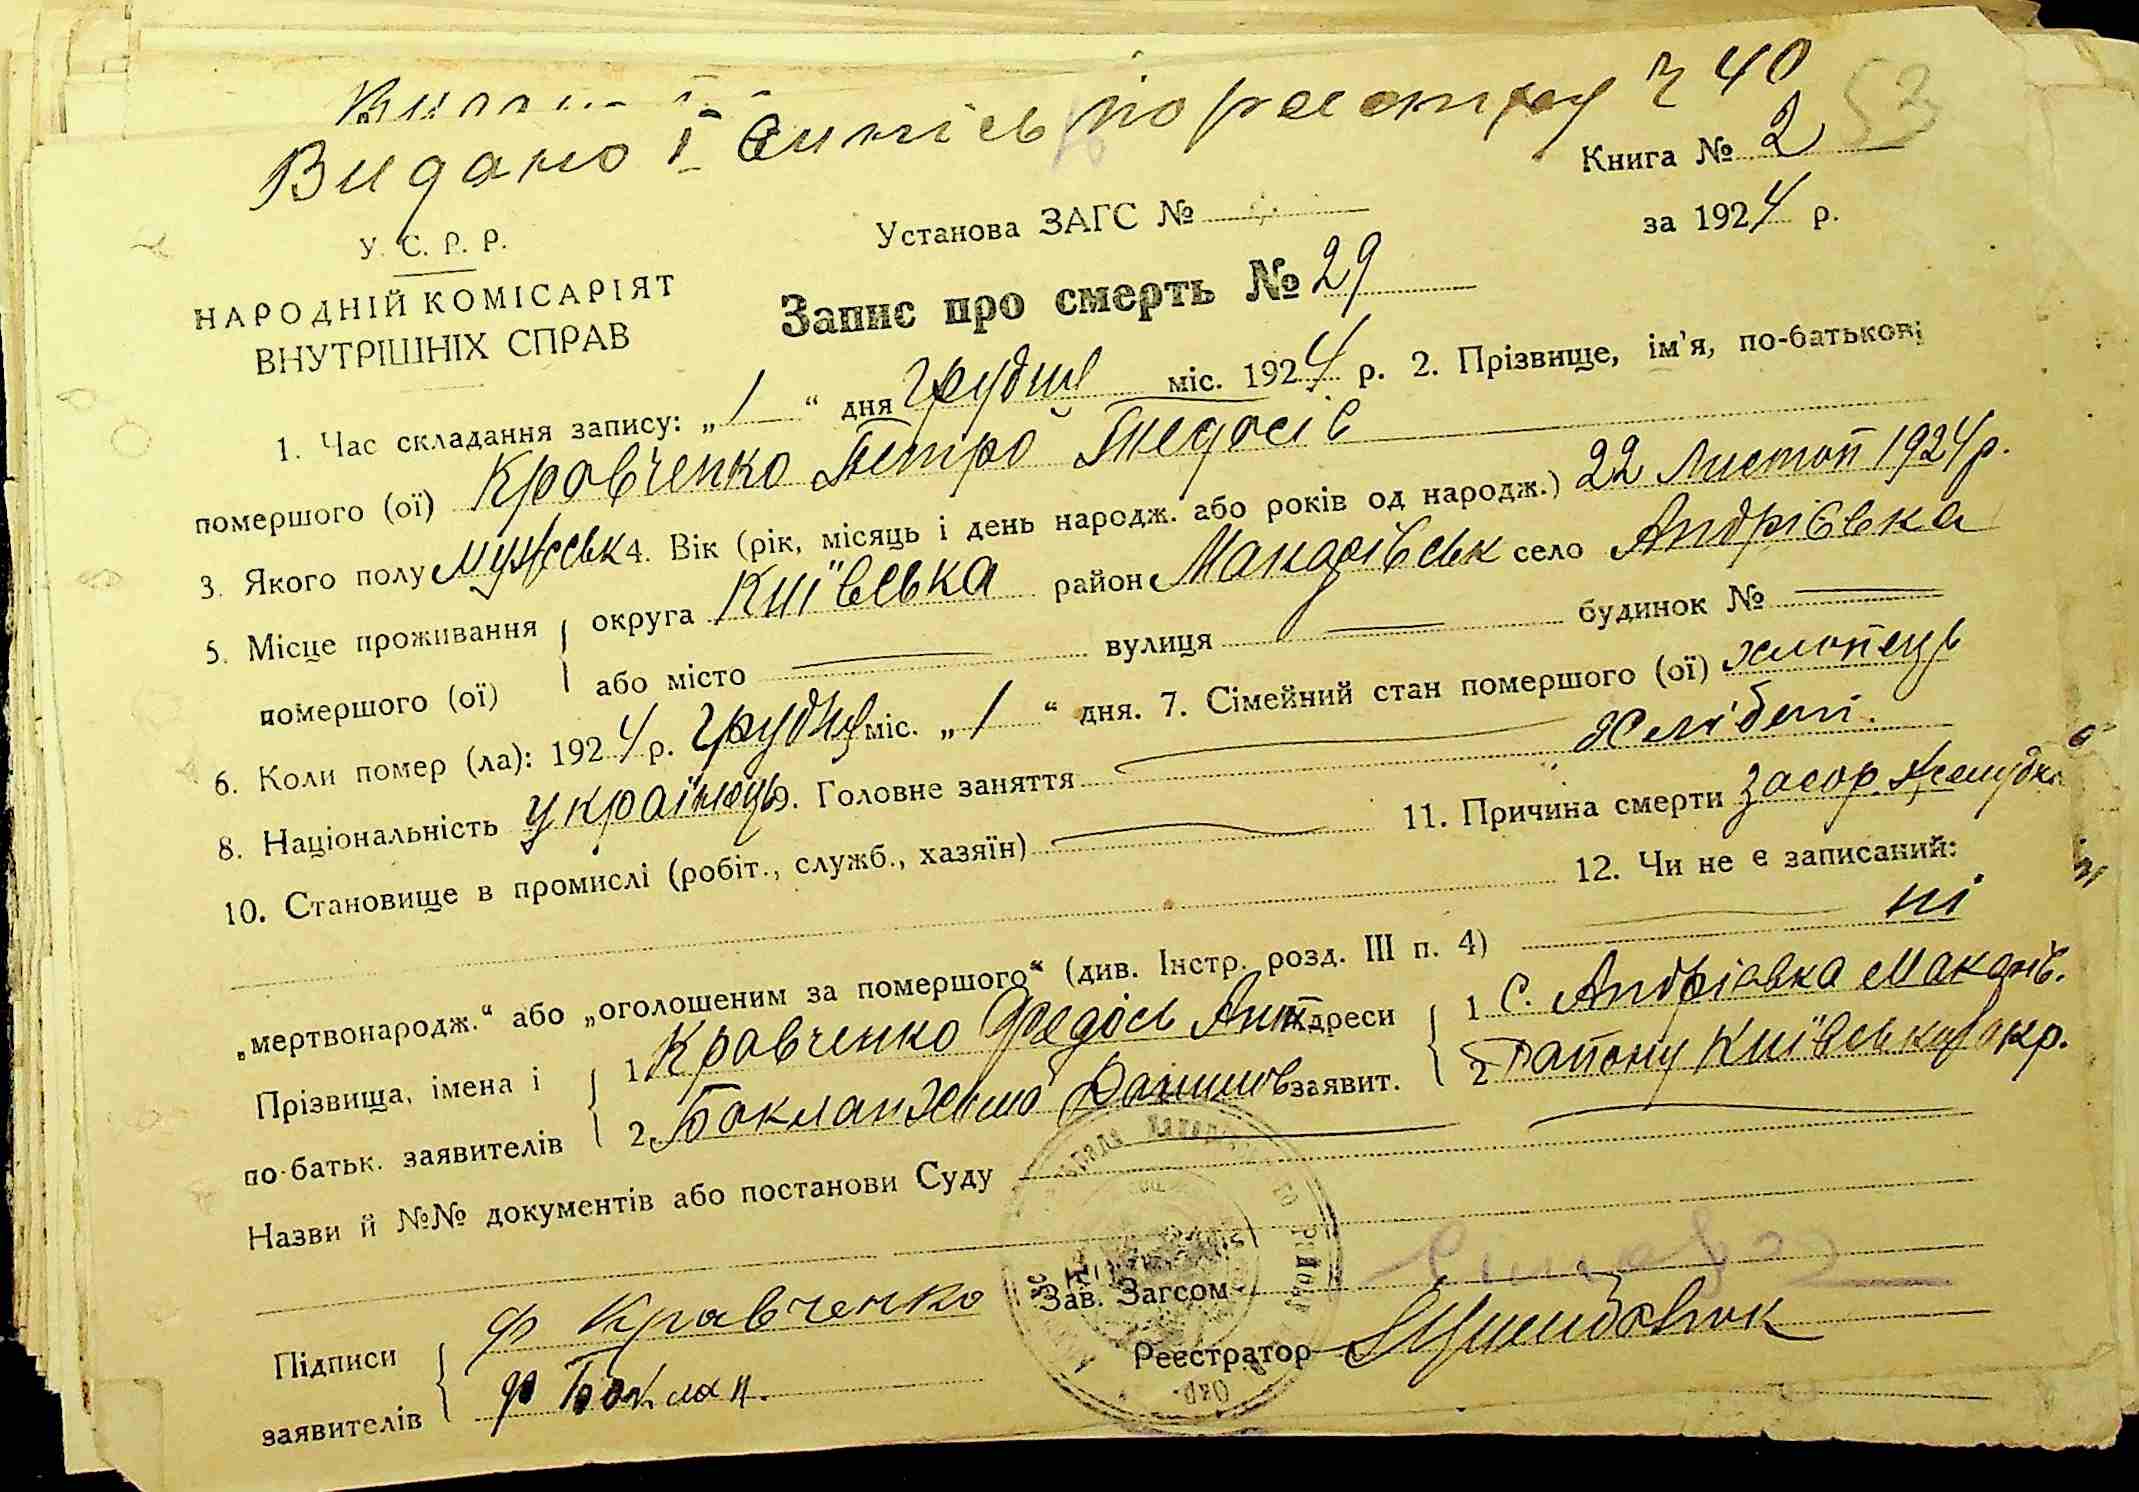 Видано ї виписъ по реєстру Ч 40
Книга № 2 53
У. С. Р. Р.
Установа ЗАГС №
за 1924 р.
НАРОДНІЙ КОМІСАРІЯТ
ВНУТРІШНІХ СПРАВ
Запис про смерть № 29
1. Час складання запису: „1“ дня Грудня міс. 1924 р. 2. Прізвище, ім'я, по-батькові
помершого (ої) Кравченко Петро Тнедосів
3. Якого полу мужськ 4. Вік (рік, місяць і день народж. або років од народж.) 22 Листоп 1924 р.
5. Місце проживання помершого (ої) округа Київська район Макарівськ село Андріївка
або місто — вулиця — будинок № —
6. Коли помер (ла): 1924 р. Грудня міс. „1“ дня. 7. Сімейний стан помершого (ої) хлопець
8. Національність українець. Головне заняття — хлібоп.
10. Становище в промислі (робіт., служб., хазяїн) — 11. Причина смерти засор. желудка
12. Чи не є записаний:
„мертвонародж.“ або „оголошеним за помершого“ (див. Інстр. розд. III п. 4) ні
Прізвища, імена і 1. Кравченко Федось Ант Адреси 1 С. Андріївка Макарів.
по-батьк. заявителів 2. Баклан Хима Данилов заявит. 2 Району Київської окр.
Назви й №№ документів або постанови Суду —
Підписи ф Кравченко Зав. Загсом
заявителів ф Баклан. Реєстратор